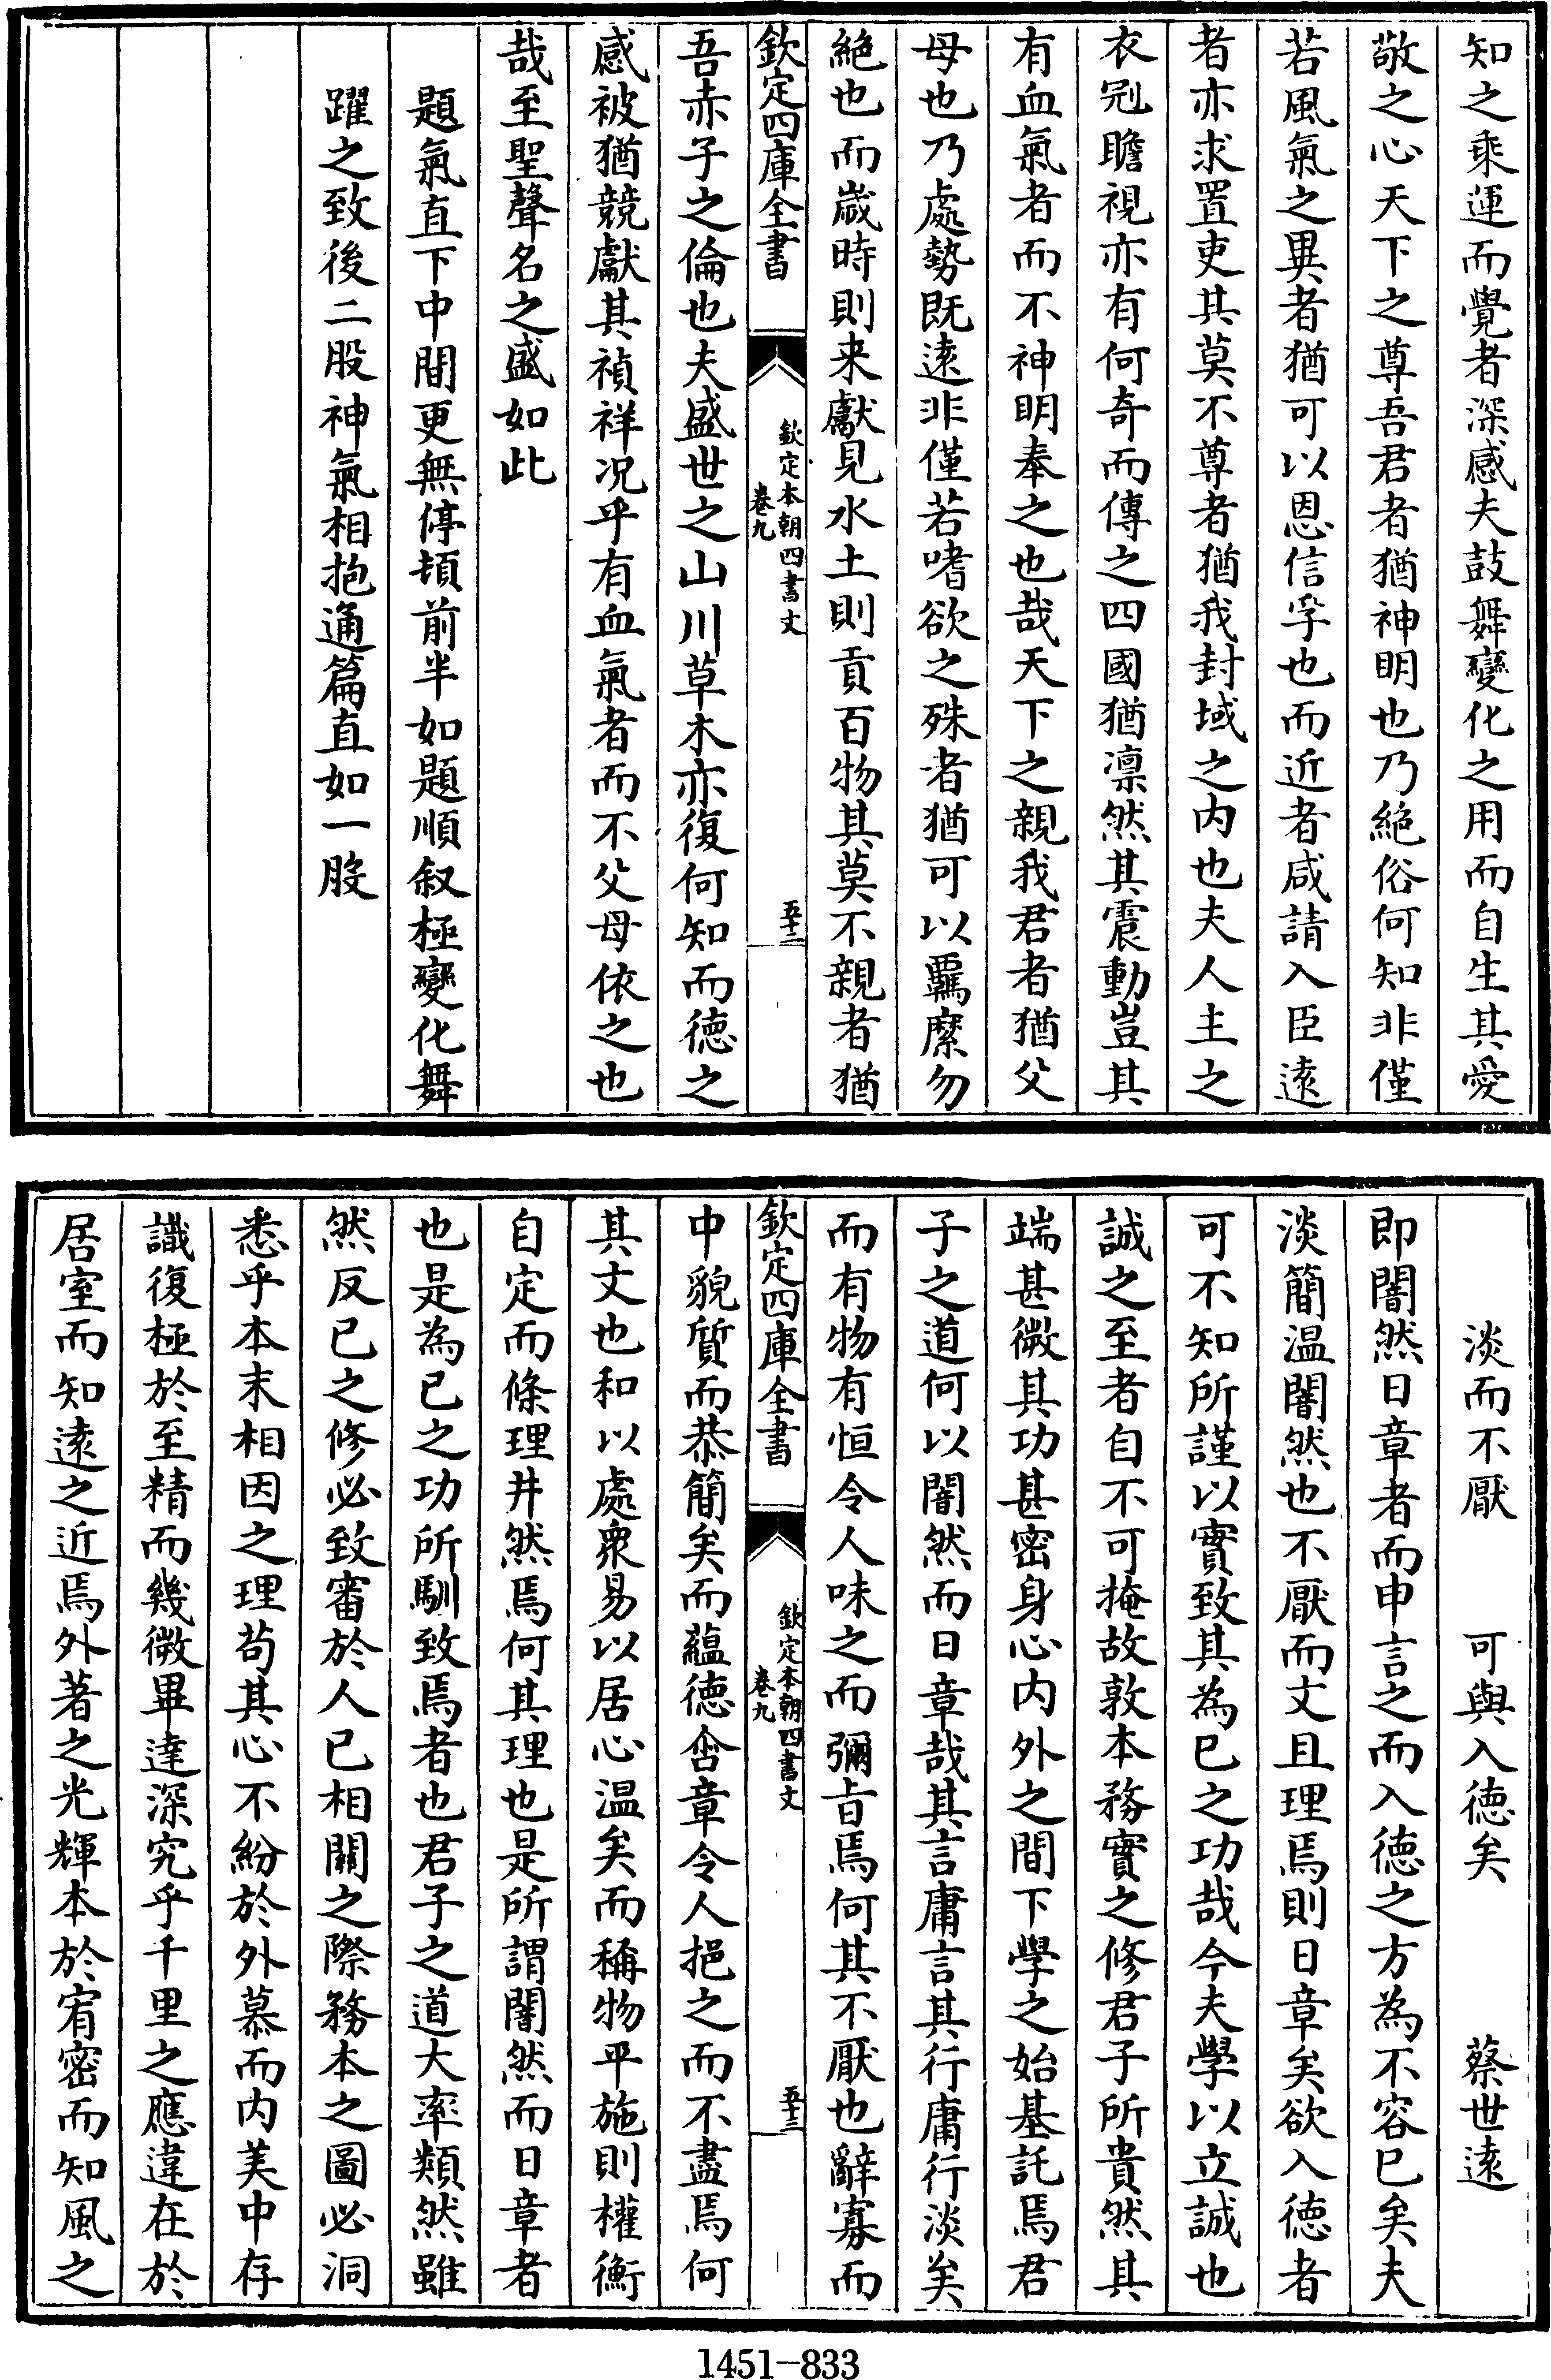 知之乘運而覺者深感夫鼓舞變化之用而自生其愛
敬之心天下之尊吾君者猶神明也乃絕俗何知非僅
若風氣之異者猶可以恩信孚也而近者咸請入臣遠
者亦求置吏其莫不尊者猶我封域之内也夫人主之
衣冠瞻視亦有何奇而傳之四國猶凛然其震動豈其
有血氣者而不神明奉之也哉天下之親我君者猶父
母也乃處勢既遠非僅若嗜欲之殊者猶可以羈縻勿
絕也而歲時則来獻見水土則貢百物其莫不親者猶
欽定四庫全書
欽定本朝四書文
卷九
五十二
吾赤子之倫也夫盛世之山川草木亦復何知而德之
感被猶競獻其禎祥况乎有血氣者而不父母依之也
哉至聖聲名之盛如此
題氣直下中間更無停頓前半如題順叙極變化舞
躍之致後二股神氣相抱通篇直如一股
淡而不厭 可與入德矣 蔡世遠
即闇然日章者而申言之而入德之方為不容已矣夫
淡簡温闇然也不厭而文且理焉則日章矣欲入德者
可不知所謹以實致其為已之功哉今夫學以立誠也
誠之至者自不可掩故敦本務實之修君子所貴然其
端甚微其功甚密身心内外之間下學之始基託焉君
子之道何以闇然而日章哉其言庸言其行庸行淡矣
而有物有恒令人味之而彌旨焉何其不厭也辭寡而
欽定四庫全書
欽定本朝四書文
卷九
五十三
中貌質而恭簡矣而蘊德含章令人挹之而不盡焉何
其文也和以處衆易以居心温矣而稱物平施則權衡
自定而條理井然焉何其理也是所謂闇然而日章者
也是為已之功所馴致焉者也君子之道大率類然雖
然反已之修必致審於人已相關之際務本之圖必洞
悉乎本末相因之理苟其心不紛於外慕而内美中存
識復極於至精而幾微畢達深究乎千里之應違在於
居室而知遠之近焉外著之光輝本於宥密而知風之
1451-833